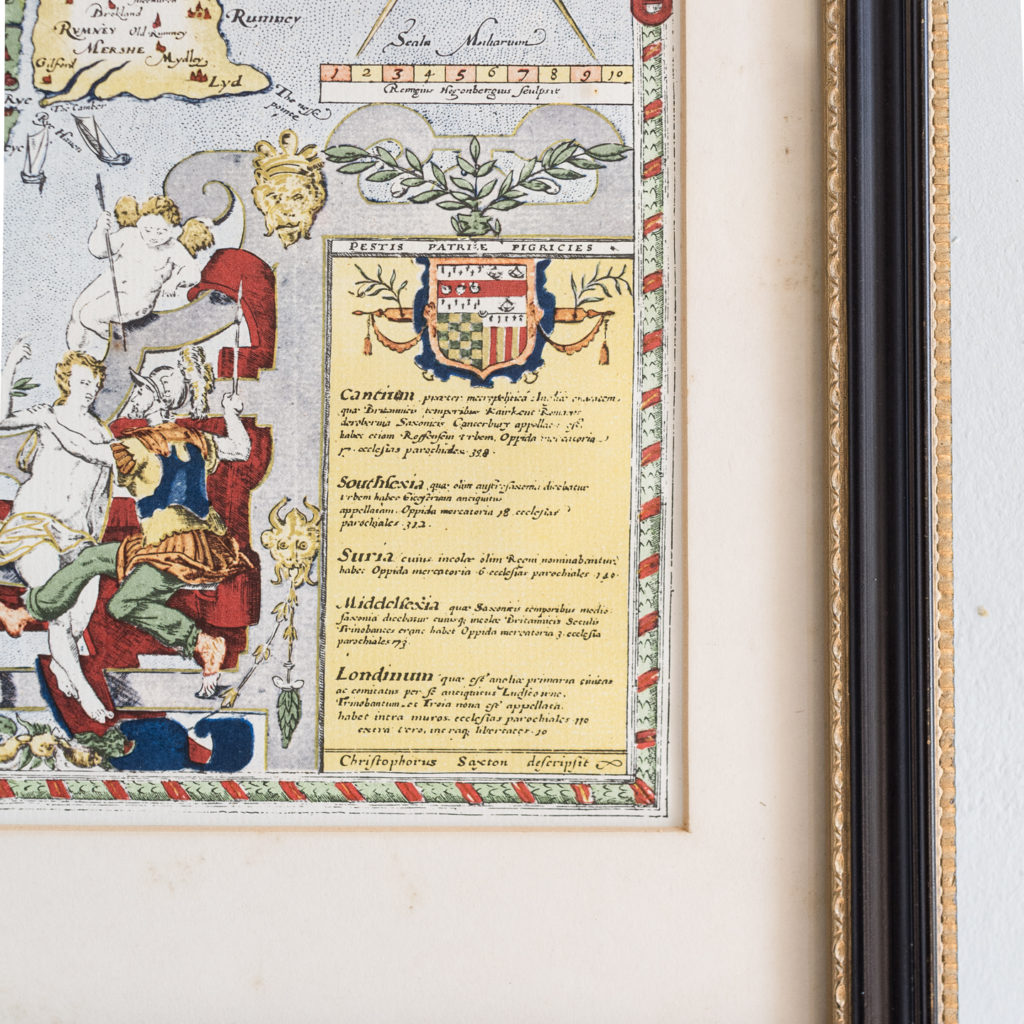 Brokland
Rumney
RVMNEY Old Rumney
MERSHE
Mydley
Gilford
Lyd
Rye
The Camber
The nesse
pointe
Rye Haven
Scala Miliarum
1 2 3 4 5 6 7 8 9 10
Remigius Hogenbergius sculpsit
PESTIS PATRIÆ PIGRICIES
Cantium præter metropoliticā
quæ Britannicis temporibus Kairkent
Saxonicis Canterbury
habet etiam Roffensem vrbem, Oppida mercatoria
17. ecclesias parochiales 398.
Southsexia quæ olim dicebatur
vrbem habet Cicestriam antiquitus
appellatam. Oppida mercatoria 18. ecclesias
parochiales 312.
Suria cuius incolæ olim Regni nominabantur
habet Oppida mercatoria 6. ecclesias parochiales 140.
Middelsexia quæ Saxonicis temporibus medio
saxonia dicebatur cuiusq; incolæ Britannicis Seculis
Trinobantes erant habet Oppida mercatoria 3. ecclesia
parochiales 73
Londinum quæ est angliæ primaria civitas
ac comitatus per se antiquitus Ludstowne,
Trinobantum, et Troia nova est appellata.
habet intra muros, ecclesias parochiales 110
extra vero, intraq; libertates. 10
Christophorus Saxton descripsit